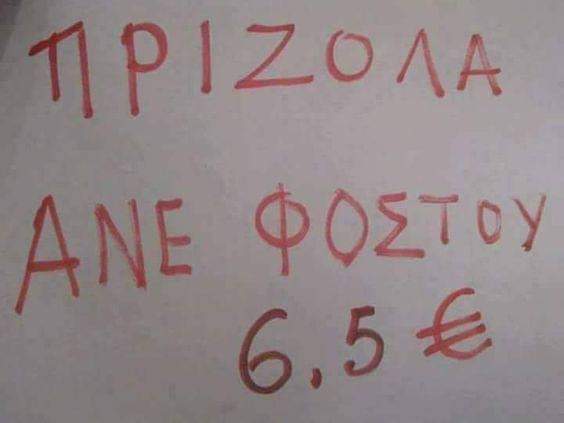 ΠΡΙΖΟΛΑ
ΑΝΕ ΦΟΣΤΟΥ
6,5 €